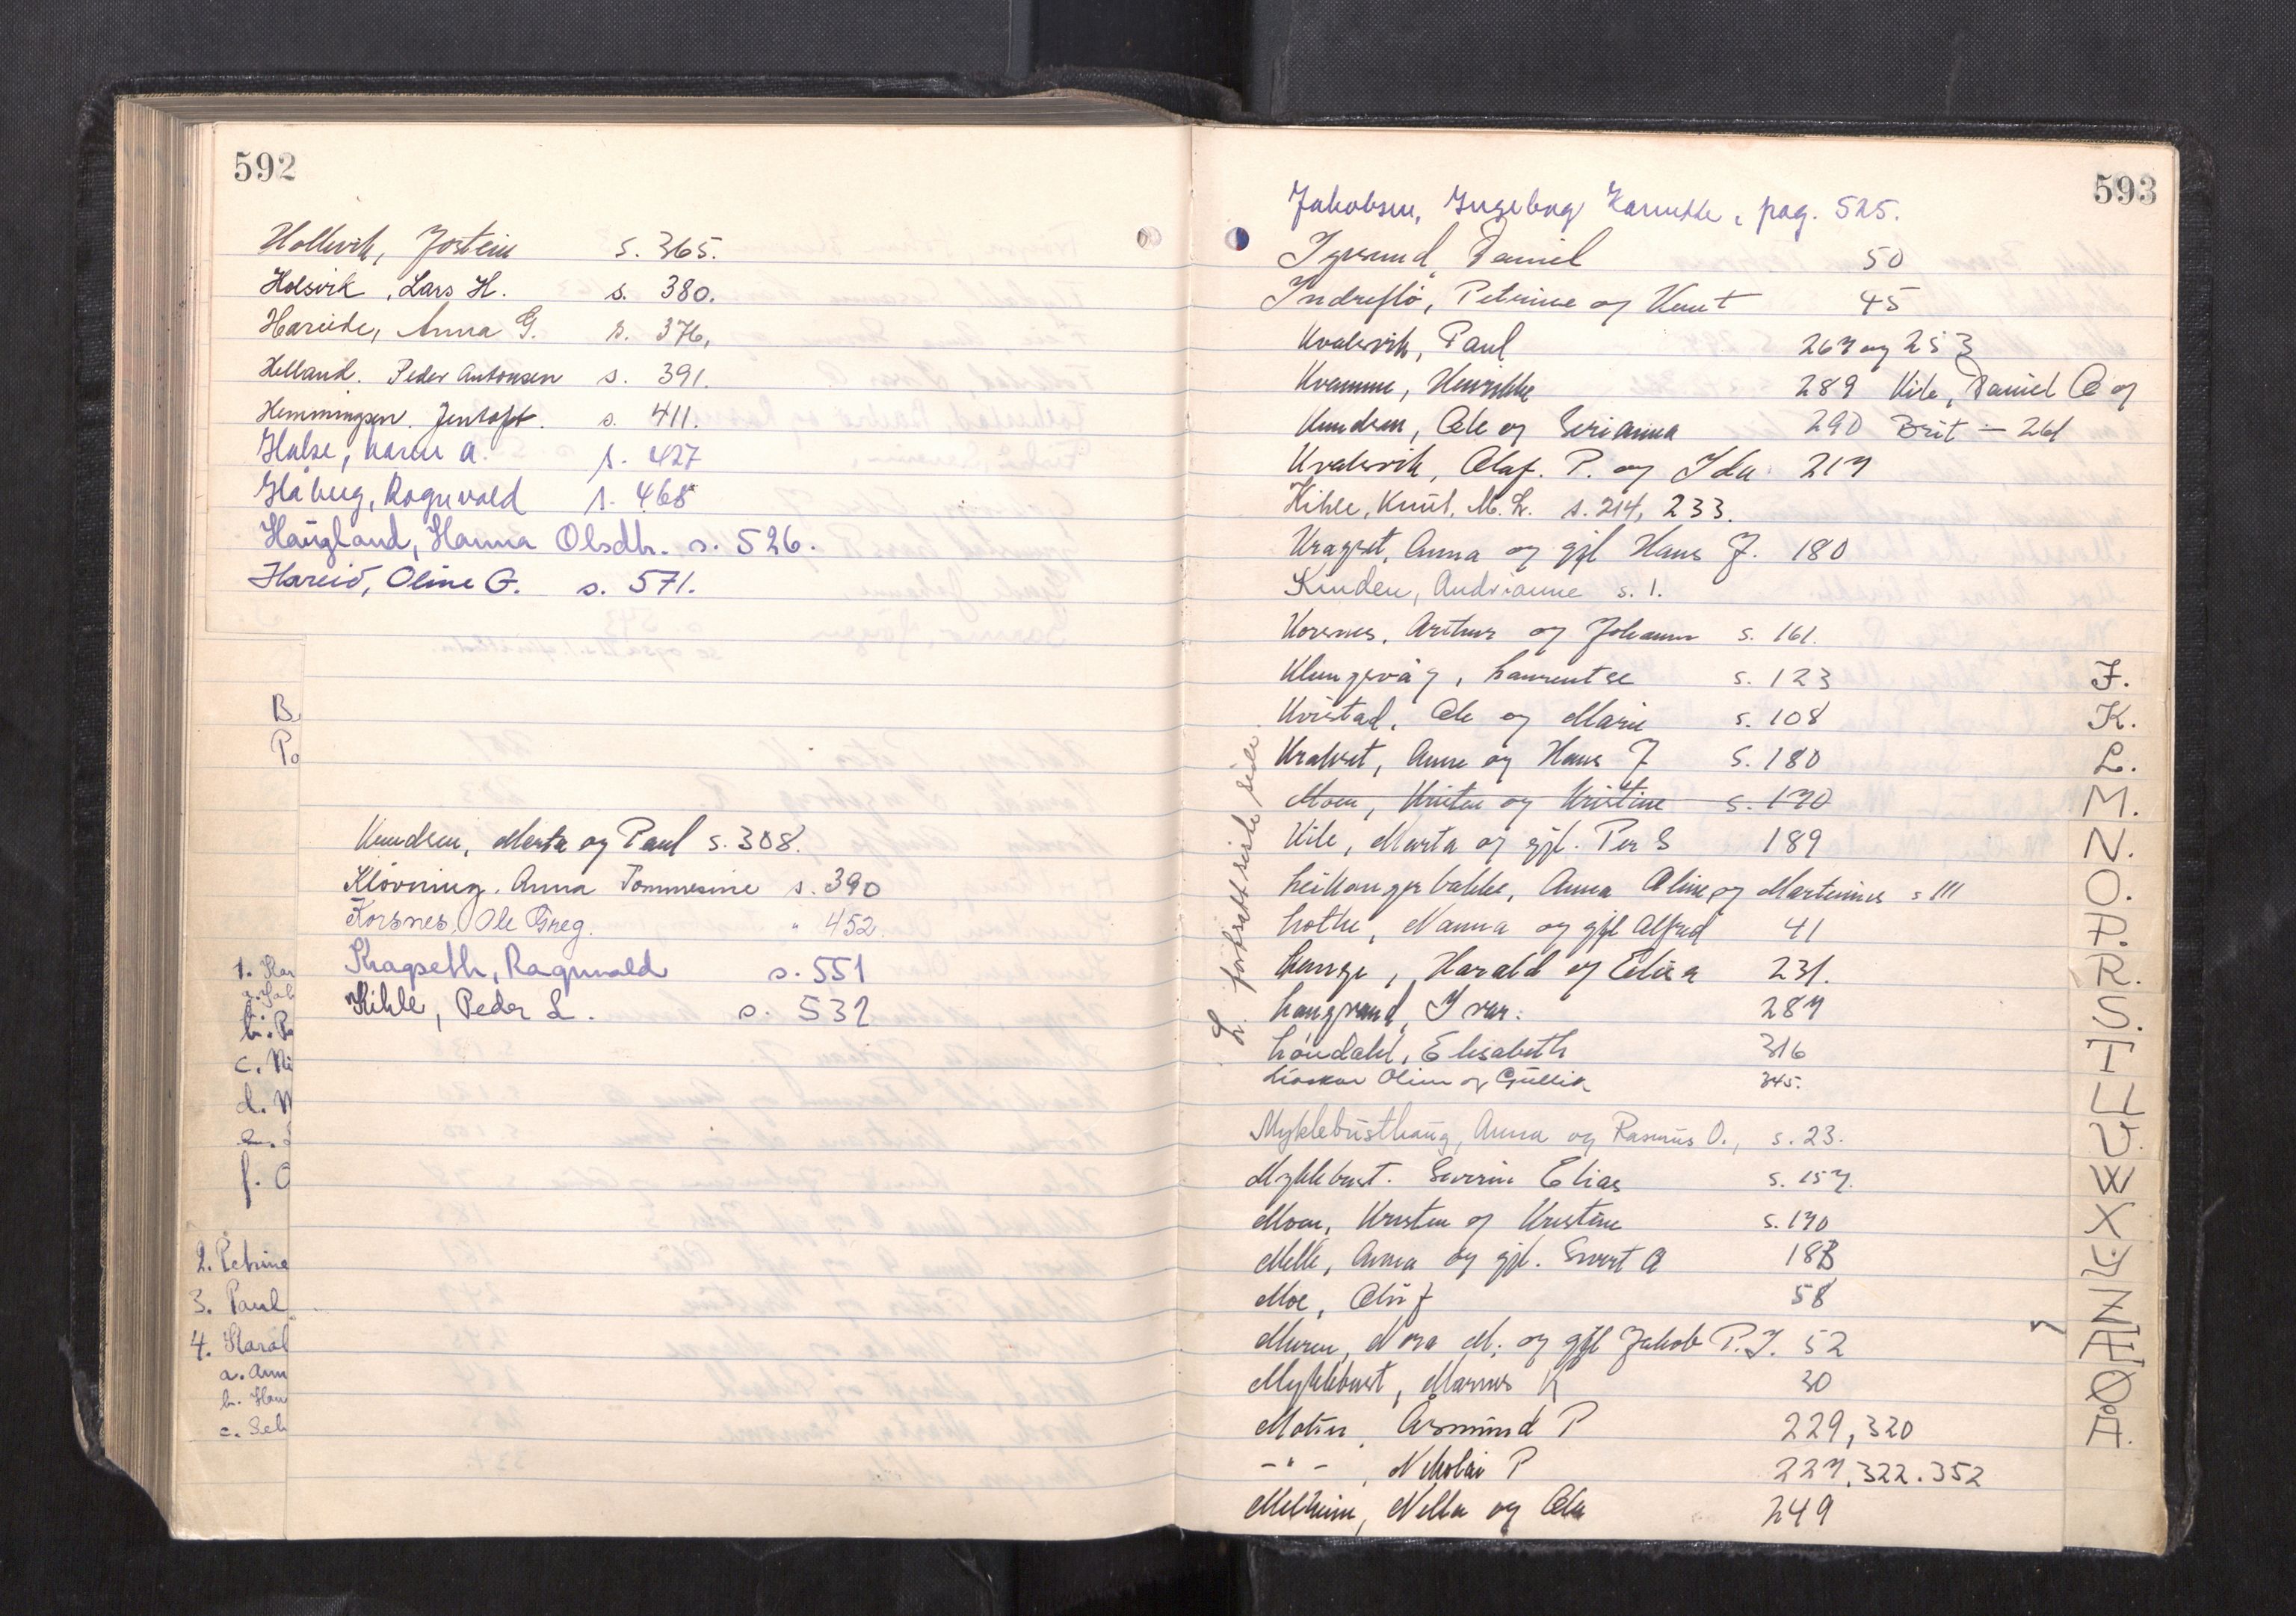 592
Hollevik, Jostein s. 365.
Holsvik, Lars H. s. 380.
Hareide, Anna G. s. 376,
Helland. Peder Antonsen s. 391.
Hemmingsen. Jentoft. s. 411.
Halse, Karen A. s. 427
Håberg, Ragnvald s. 468
Haugland, Hanna Olsdtr. s. 526.
Hareid, Oline G. s. 571.
B.
Po
Knudsen, Marta og Paul s. 308.
Kløvning. Anna Tommesine s. 390
Korsnes, Ole Greg. " 452.
Kragseth, Ragnvald s. 551
Kihle, Peder L. s. 532
1. Kar
b. P
c. Ni
d. M
f. O
2. Petrine
3. Paul
4. Karol
a. Ann
b. Han
c. Seh
593
Jakobsen, Ingeborg, pag. 525.
Igesund, Daniel 50
Indreflø, Petrine og Knut 45
Kvalsvik, Paul 267 og 253
Kvamme, Henrikke 289 Kile, Daniel O og
Knudsen, Ole og Serianna 290 Brit — 261
Kvalsvik, Olaf. P. og Ida 217
Kihle, Knut. M. L. s. 214, 233.
Kragset, Anna og gjl Hans J. 180
Kinden, Andrianne s. 1.
Korsnes, Arthur og Johanne s. 161.
Klungsvåg, Laurentse s. 123
Kvistad, Ole og Marie s. 108
Kralset, Anne og Hans J s. 180
Moen, Kristen og Kristine s. 170
Kile, Marta og gjl. Per S 189
Leikangerbakke, Anna Oline og Martinus s 111
Lothe, Nanna og gjl Alfred 41
Lange, Harald og Elisa 231.
Langvand, Ivar. 287
Løndahl, Elisabeth 316
Liaskar Oline og Gullik 345.
L. fortsatt siste side.
Myklebusthaug, Anna og Rasmus O., s. 23.
Myklebust. Severin Elias s. 157.
Moen, Kristen og Kristine s. 170
Melle, Anna og gjl. Sivert A 183
Moe, Oluf 58
Muren, Nora M. og gjl Jakob P. J. 52
Myklebust, Marius K 30
Moltu, Åsmund P 229, 320
- " - , Nikolai P 227, 322. 352
Melheim, Nella og Ola 249
J.
K.
L.
M.
N.
O.
P.
R.
S.
T
U.
V.
W
X
Y.
Z
Æ
Ø
Å.